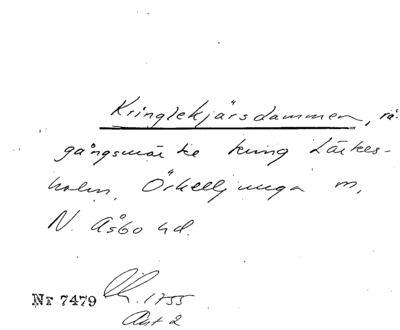 Kringlekjärsdammen, rå-
gångsmärke kring Lärkes-
holm, Örkelljunga m,
N. Åsbo hd.
Nr 7479 1755
Akt 2